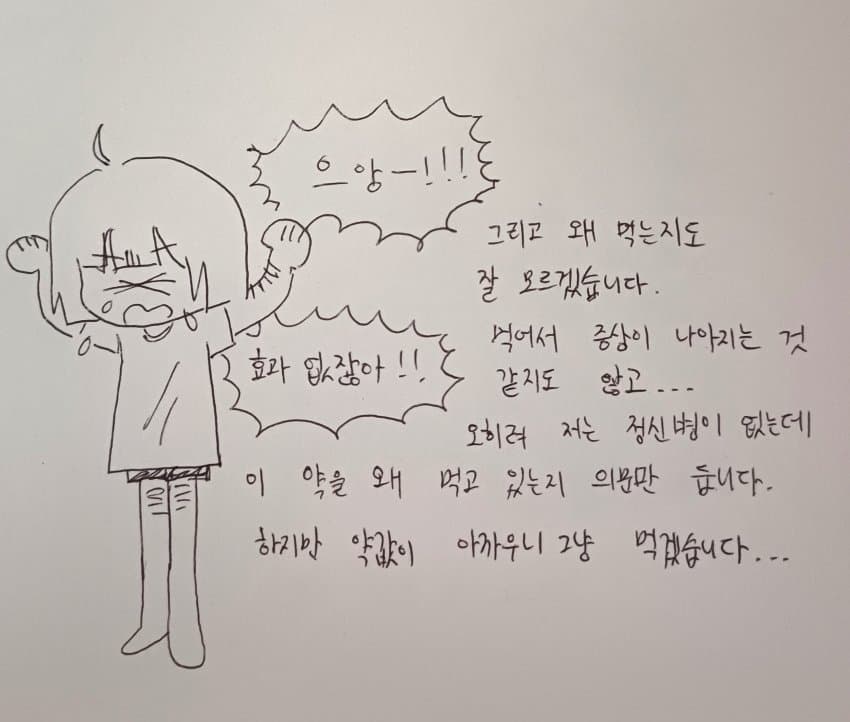 으앙ㅡ!!!
그리고 왜 먹는지도
잘 모르겠습니다.
먹어서 증상이 나아지는 것
같지도 않고...
효과 없잖아!!
오히려 저는 정신병이 없는데
이 약을 왜 먹고 있는지 의문만 듭니다.
하지만 약값이 아까우니 그냥 먹겠습니다...